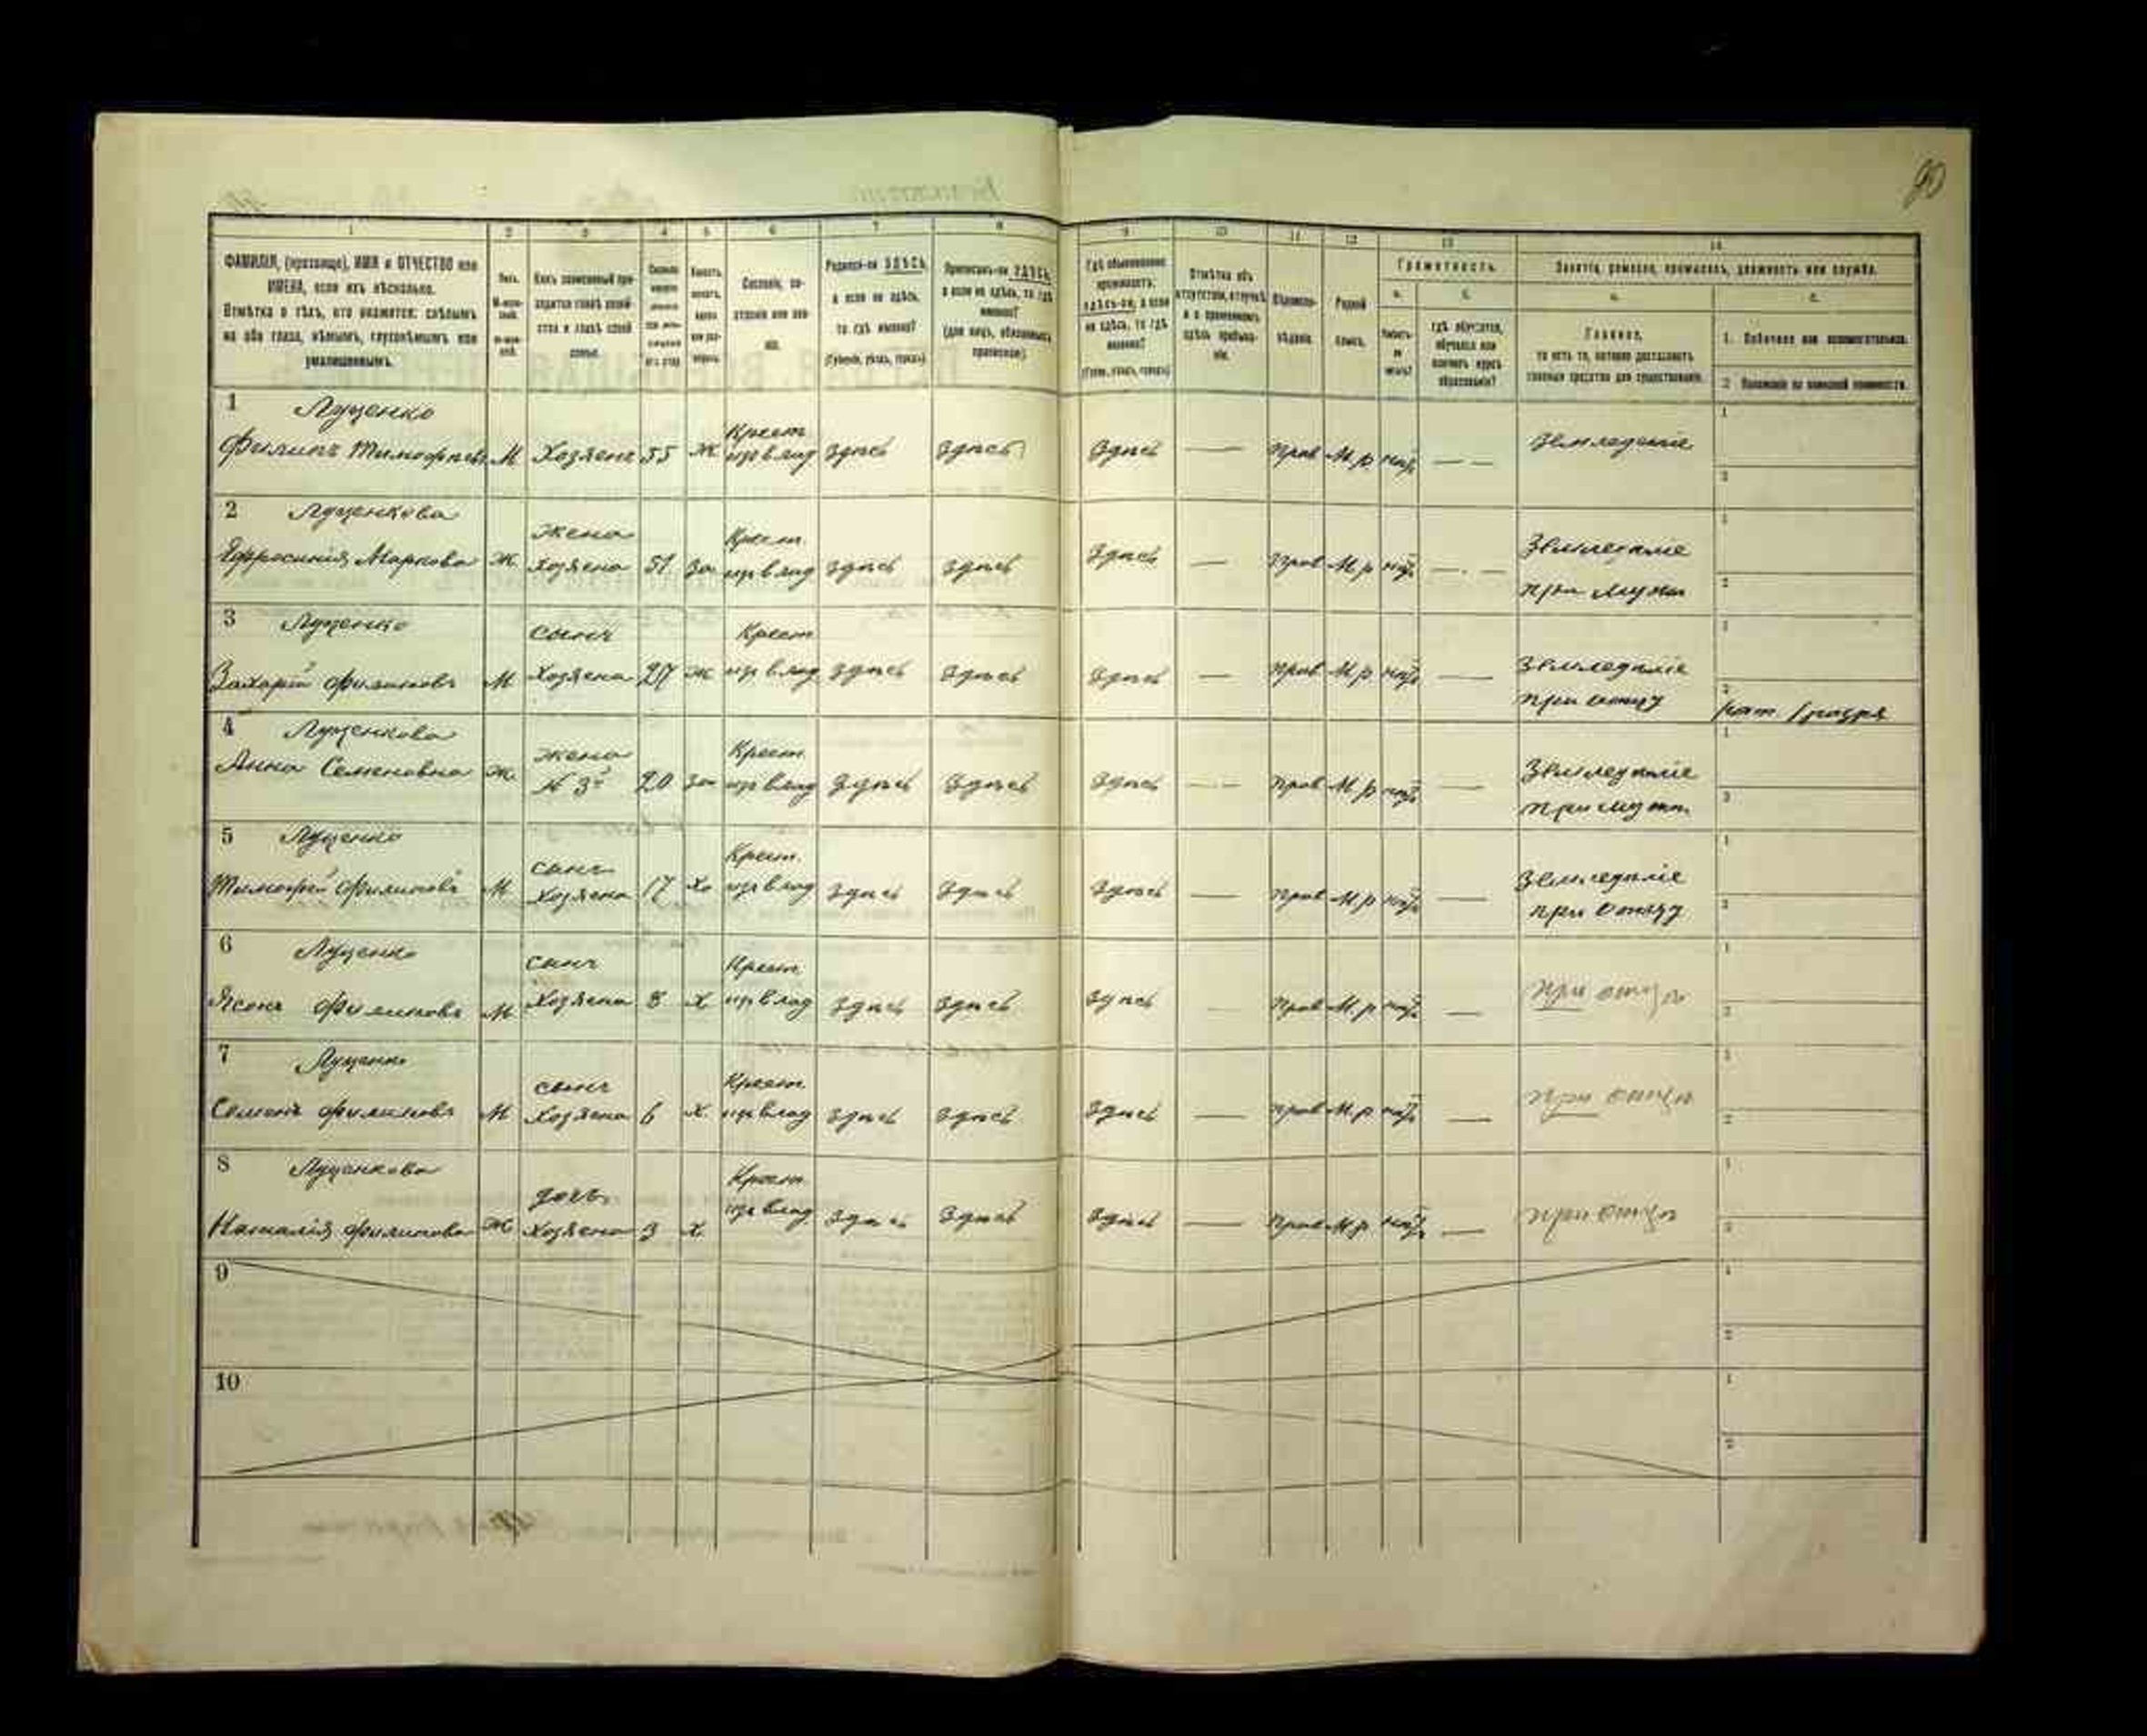 90
1 2 3 4 5 6 7 8 9 10 11 12 13 14
ФАМИЛІЯ, (прозвище), ИМЯ и ОТЧЕСТВО или
ИМЕНА, если ихъ нѣсколько.
Отмѣтка о тѣхъ, кто окажется: слѣпымъ
на оба глаза, нѣмымъ, глухонѣмымъ или
умалишеннымъ.
Полъ.
Какъ записанный при-
ходится главѣ хозяй-
ства и главѣ своей
семьи.
Сословіе, со-
стояніе или зва-
ніе.
Родился-ли ЗДѢСЬ,
а если не здѣсь,
то гдѣ именно?
(Губернія, уѣздъ, городъ).
Приписанъ-ли ЗДѢСЬ,
а если не здѣсь, то гдѣ
именно?
(для лицъ, обязанныхъ
припискою).
Гдѣ обыкновенно
проживаетъ:
здѣсь-ли, а если
не здѣсь, то гдѣ
именно?
(Губер., уѣздъ, городъ)
Отмѣтка объ
отсутствіи, отлучкѣ
и о временномъ
здѣсь пребыва-
ніи.
Вѣроиспо-
вѣданіе.
Родной
языкъ.
Грамотность.
а. б.
Умѣетъ-
ли
читать?
Гдѣ обучается,
обучался или
кончилъ курсъ
образованія?
Занятіе, ремесло, промыселъ, должность или служба.
а.
Главное,
то есть то, которое доставляетъ
главныя средства для существованія.
1. Побочное или вспомогательное.
2. Положеніе по воинской повинности.
1 Луценко
Филипъ Тимофѣевъ М Хозяинъ 55 Ж Крест. изъ влад здѣсь здѣсь Здѣсь — Прав М.р. нѣтъ — Земледѣліе
2 Луценкова
Ефросинія Маркова Ж жена Хозяина 51 За Крест. изъ влад здѣсь здѣсь Здѣсь — Прав М.р нѣтъ — Земледѣліе
при мужѣ
3 Луценко
Захарій Филиповъ М сынъ Хозяина Ж Крест изъ влад здѣсь здѣсь Здѣсь — Прав М.р нѣтъ — Земледѣліе
при отцу
4 Луценкова
Анна Семеновна Ж жена № 3º 20 За Крест. изъ влад здѣсь здѣсь Здѣсь — Прав М.р нѣтъ — Земледѣліе
при мужѣ
5 Луценко
Тимофей Филиповъ М сынъ Хозяина 17 Хо Крест. изъ влад здѣсь здѣсь Здѣсь — Прав М.р нѣтъ — Земледѣліе
при отцу
6 Луценко
Ясонъ Филиповъ М сынъ Хозяина 8 Х Крест изъ влад здѣсь здѣсь здѣсь Прав М.р нѣтъ — при отцѣ
7 Луценко
Семенъ Филиповъ М сынъ Хозяина 6 Х Крест. изъ влад здѣсь здѣсь здѣсь — Прав М.р нѣтъ — при отцѣ
8 Луценкова
Наталія Филипова Ж дочь Хозяина 3 Х. Крест. изъ влад здѣсь здѣсь здѣсь — Прав М.р. нѣтъ — при отцѣ
9
10